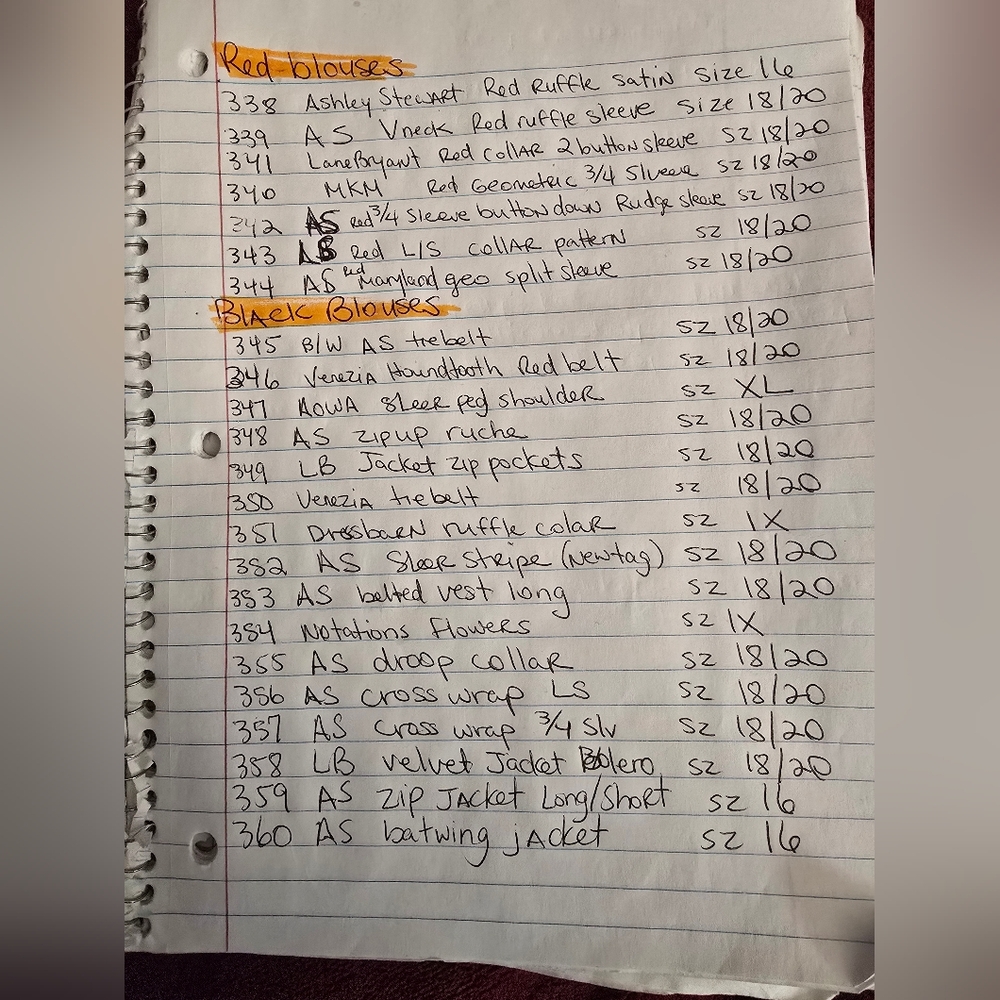 Red blouses
338 Ashley Stewart Red Ruffle Satin Size 16
339 AS Vneck Red ruffle sleeve Size 18/20
341 LaneBryant Red Collar 2 button sleeve SZ 18/20
340 MKM Red Geometric 3/4 Slveeve SZ 18/20
342 AS Red 3/4 Sleeve button down Rudge sleeve SZ 18/20
343 LB Red L/S Collar pattern SZ 18/20
344 AS Red Maryland geo split sleeve SZ 18/20
Black Blouses
345 B/W AS tiebelt SZ 18/20
346 Venezia Houndtooth Red belt SZ 18/20
347 sleer peg shoulder SZ XL
348 AS zip up ruche SZ 18/20
349 LB Jacket zip pockets SZ 18/20
350 Venezia tiebelt SZ 18/20
351 Dressbarn ruffle colar SZ 1X
352 AS Sleer Stripe (New tag) SZ 18/20
353 AS belted vest long SZ 18/20
354 Notations Flowers SZ 1X
355 AS droop collar SZ 18/20
356 AS cross wrap LS SZ 18/20
357 AS cross wrap 3/4 Slv SZ 18/20
358 LB velvet Jacket Bolero SZ 18/20
359 AS Zip Jacket Long/Short SZ 16
360 AS batwing jacket SZ 16